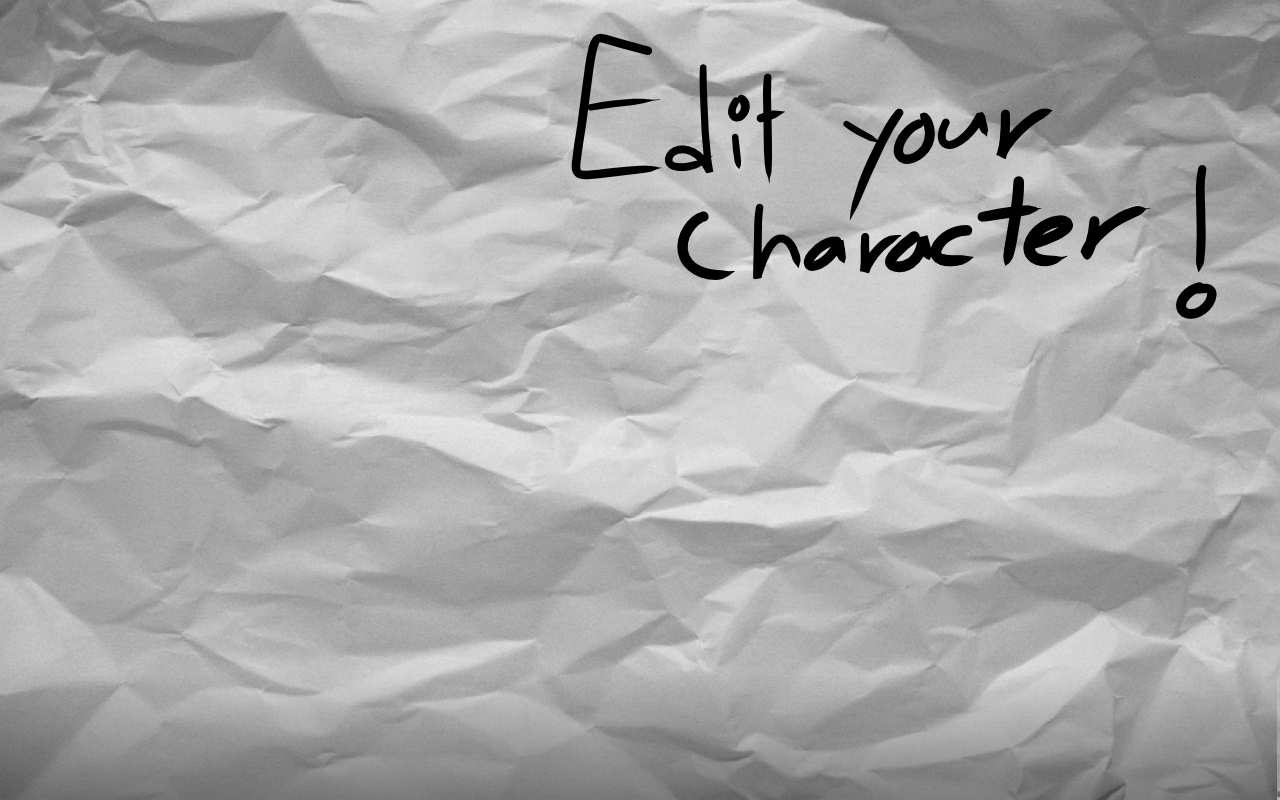 Edit your
character!